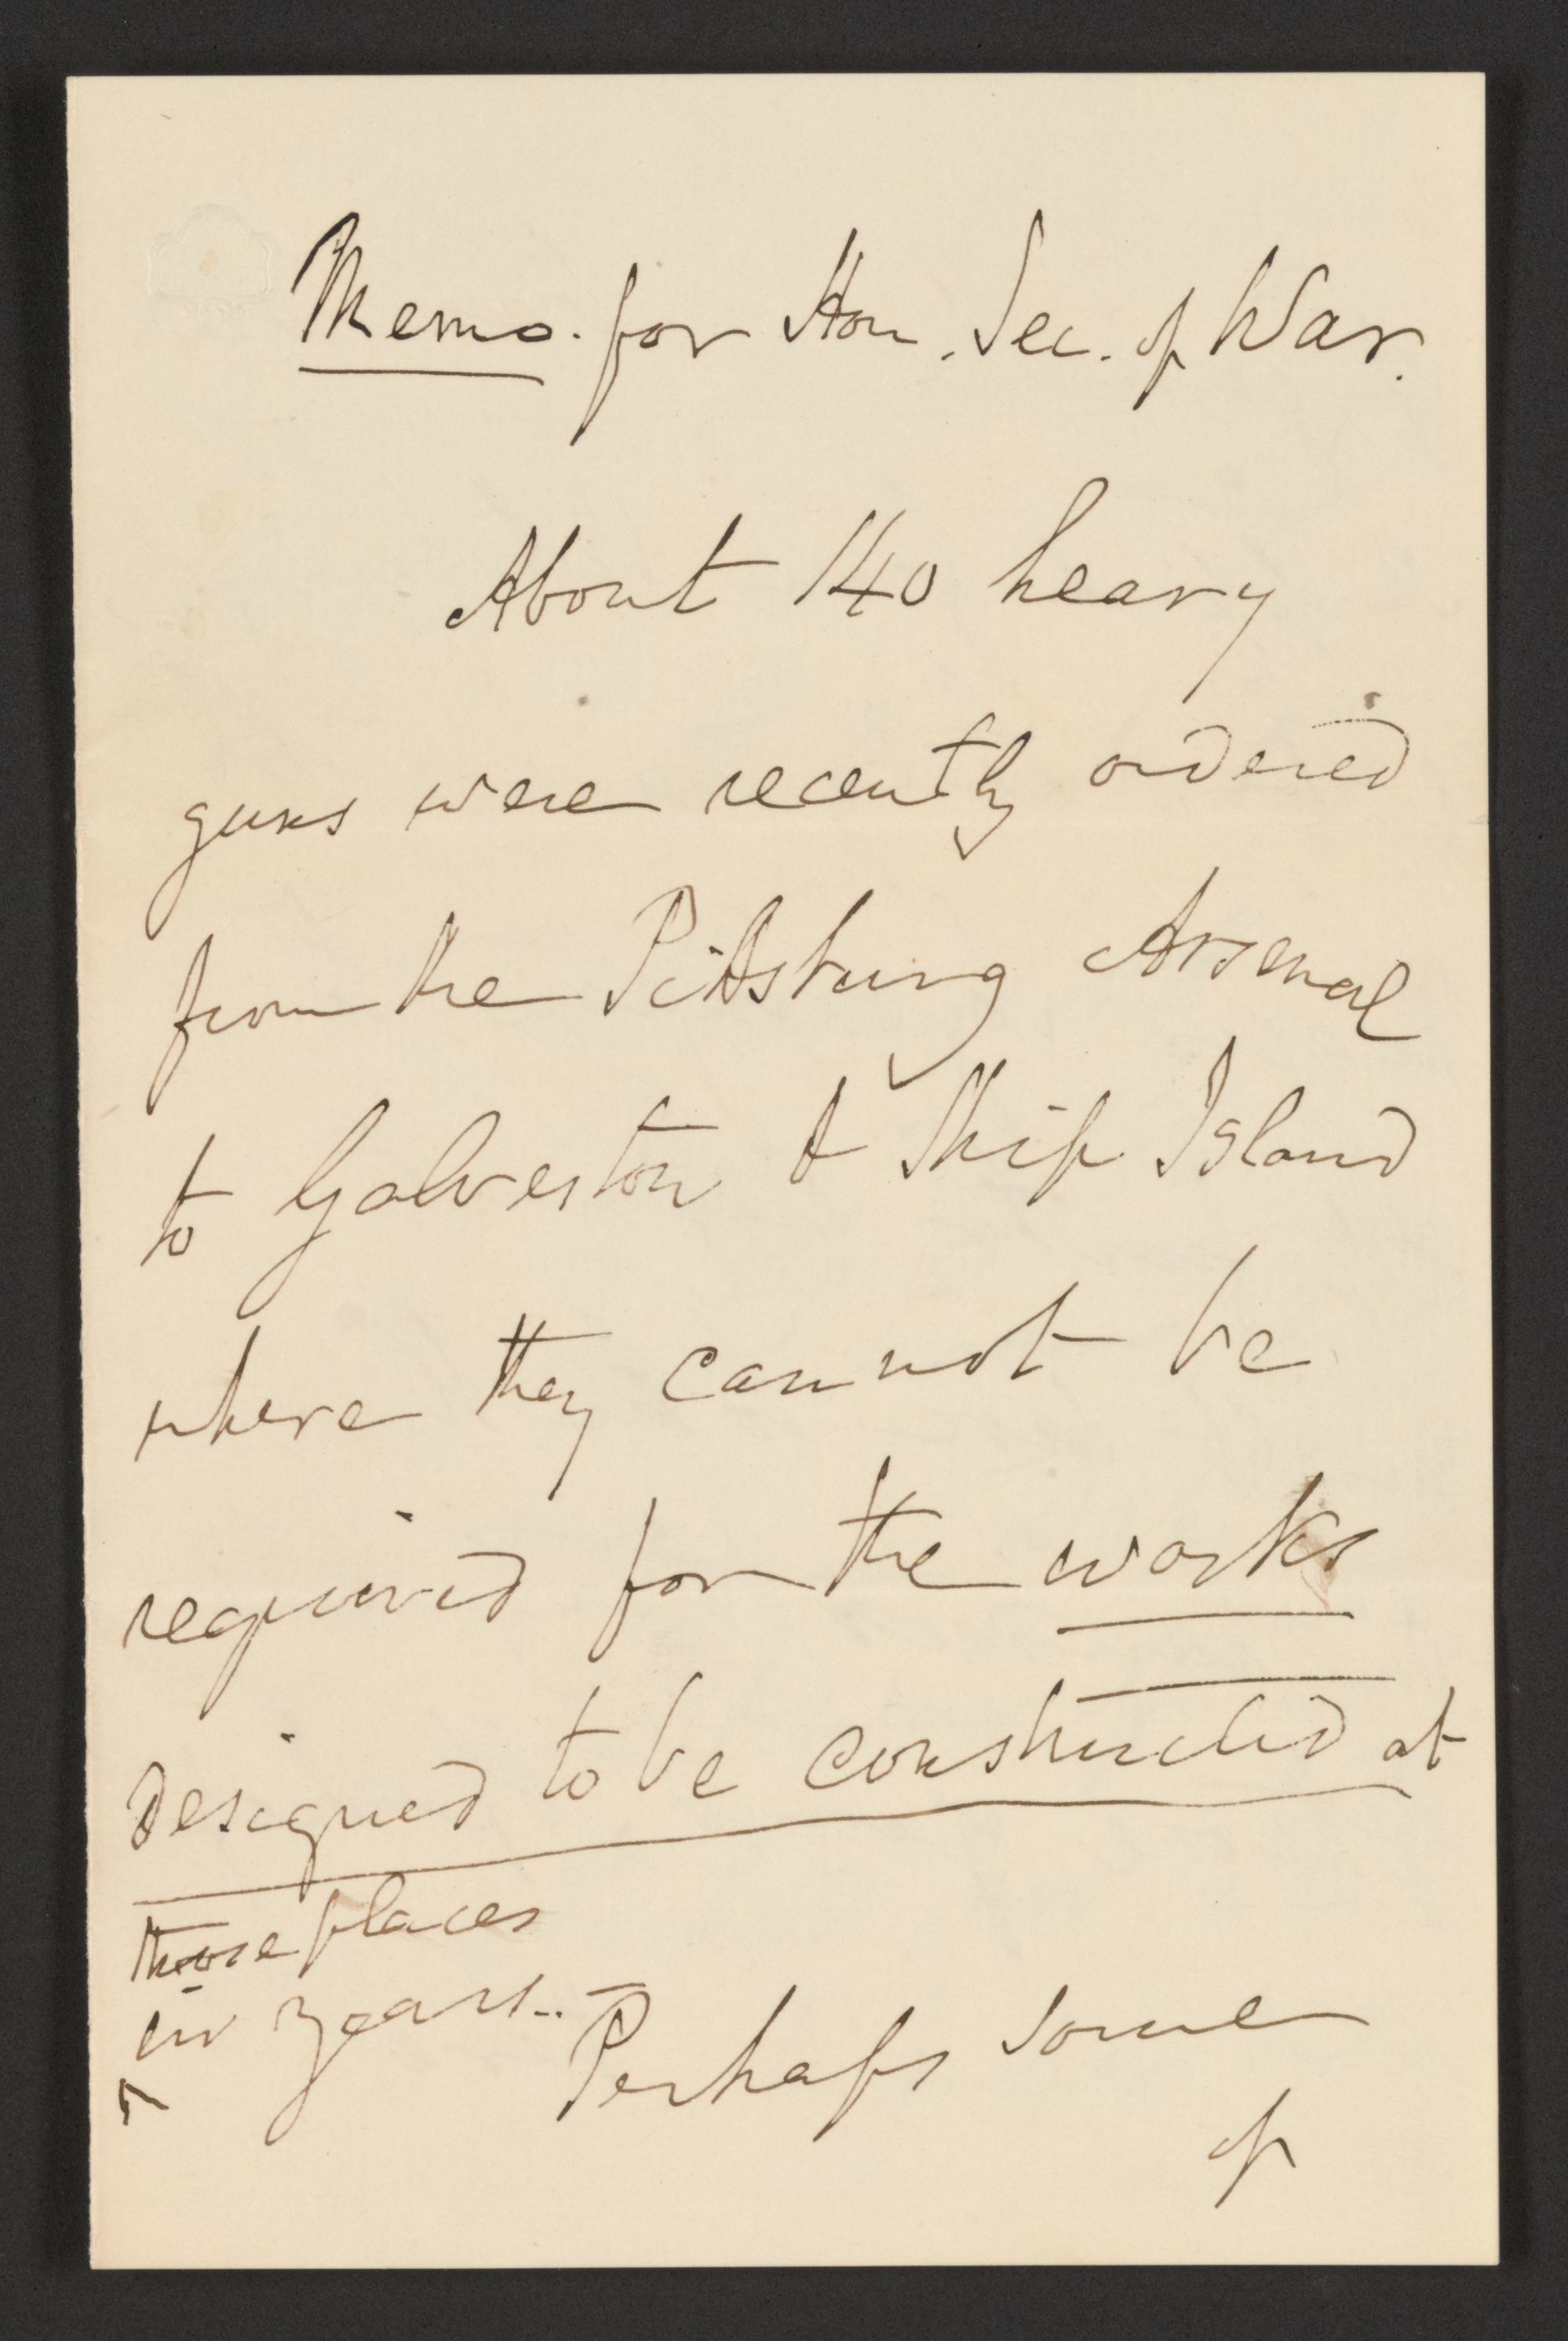 Memo. for Hon. Sec. of War.
About 140 heavy
guns were recently ordered
from the Pittsburg Arsenal
to Galveston & Ship Island
where they cannot be
required for the works
designed to be constructed at
those places
in years.. Perhaps some
of